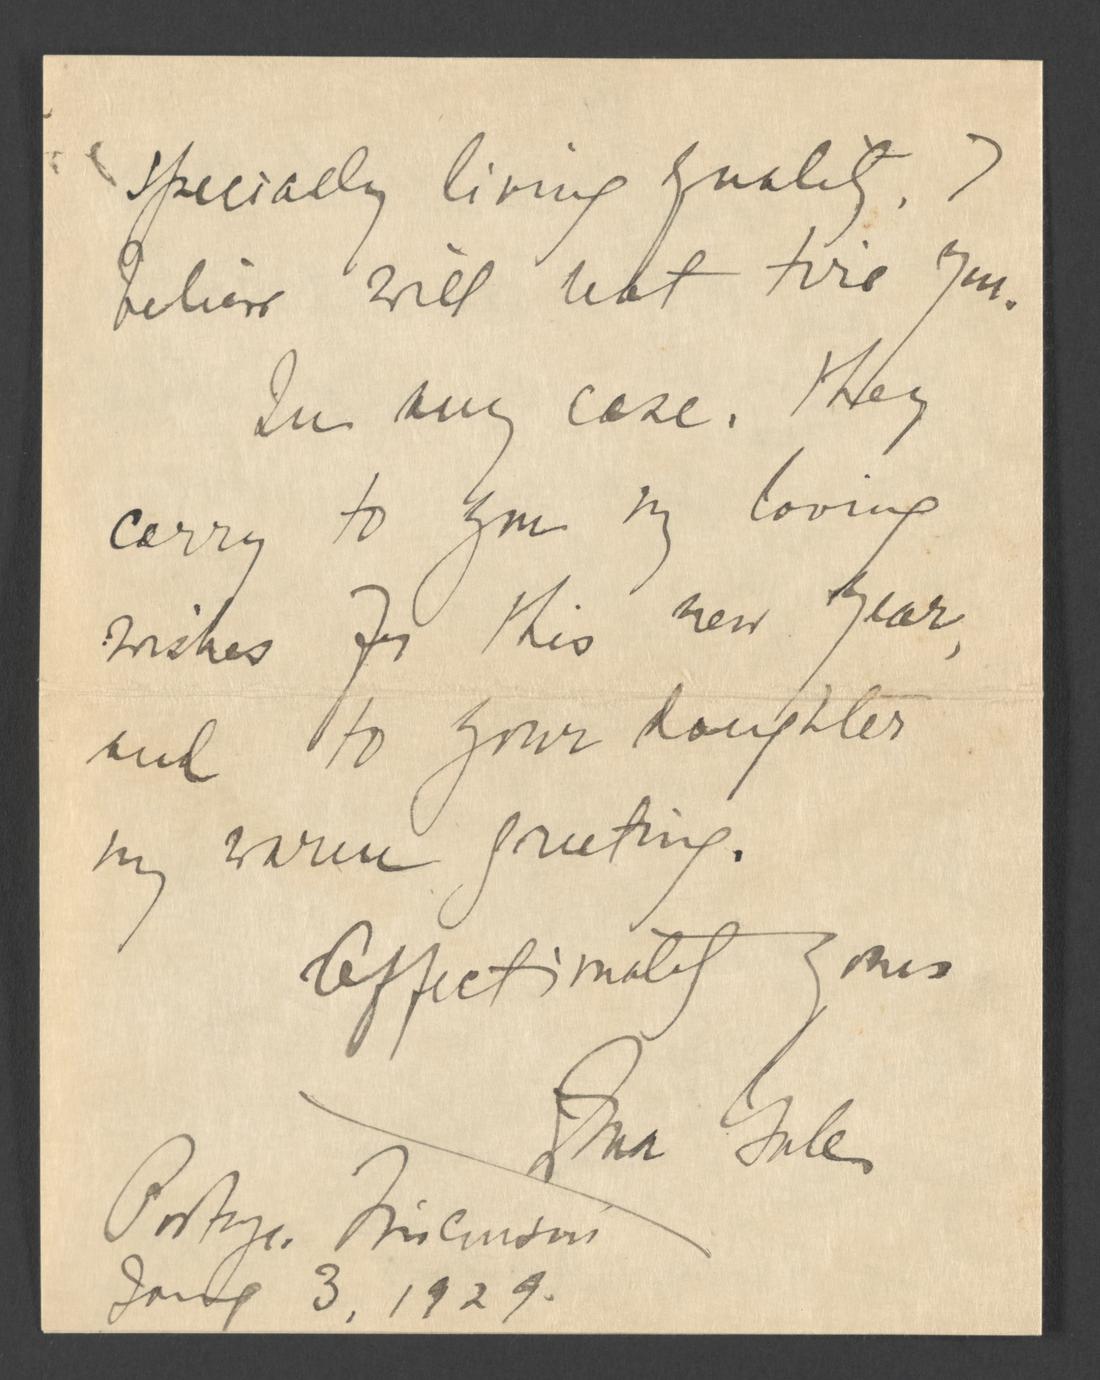 specially living quality. I
believe will not tire you.
In any case, they
carry to you my loving
wishes for this new year,
and to your daughter
my warm greeting.
Affectionately yours
Zona Gale
Portage, Wisconsin
Jany 3, 1929.